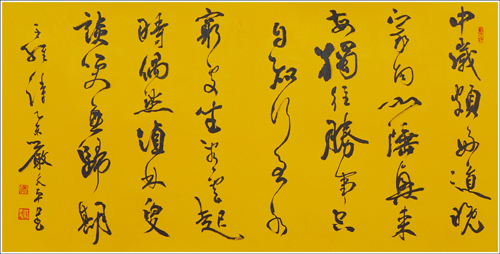 中歲頗好道晚
家南山陲興來
每獨往勝事空
自知行到水
窮處坐看雲起
時偶然值林叟
談笑無歸期
王維詩